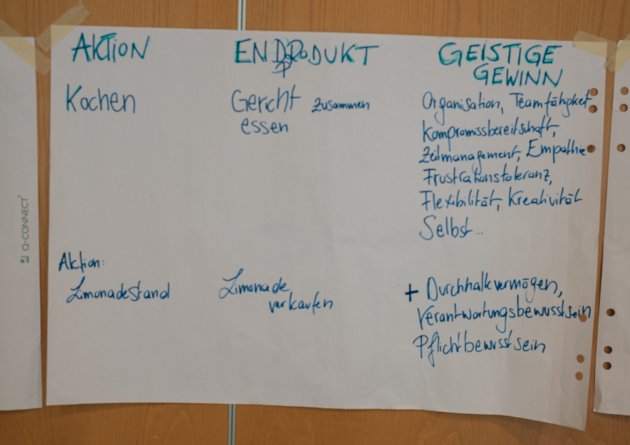 AKTION
ENDPRODUKT
GEISTIGE
GEWINN
Kochen
Gericht zusammen
essen
Organisation, Teamfähigkeit
Kompromissbereitschaft,
Zeitmanagement, Empathie
Frustrationstoleranz,
Flexibilität, Kreativität
Selbst...
Aktion:
Limonadestand
Limonade
verkaufen
+ Durchhaltevermögen,
Verantwortungsbewusstsein
Pflichtbewusstsein
Q-CONNECT